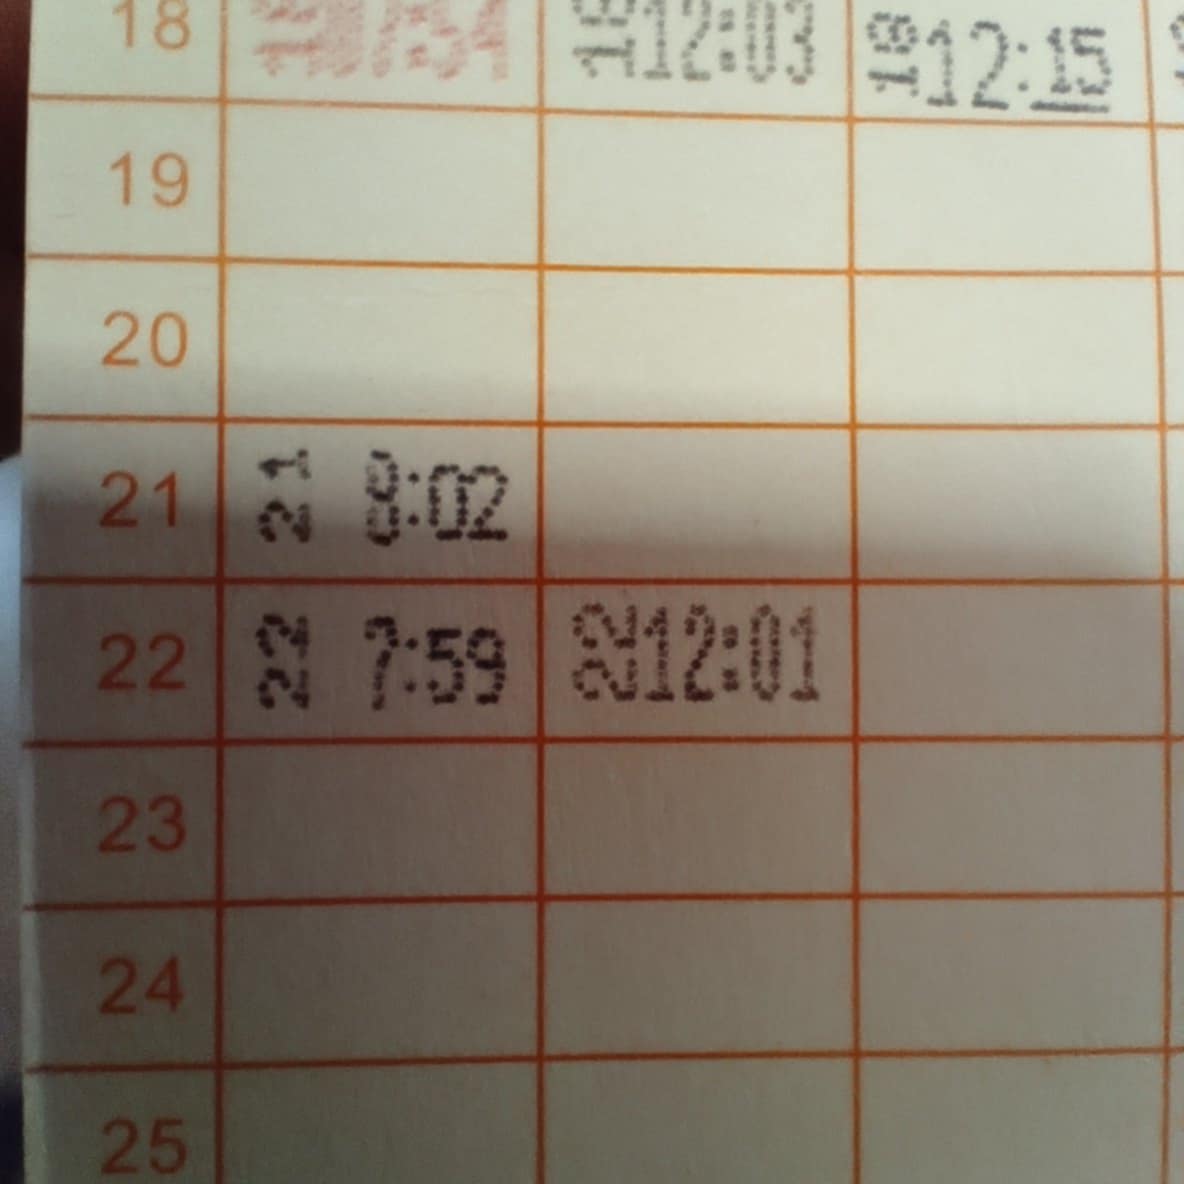 18 12:03 18 12:15
19
20
21 21 8:02
22 22 7:59 22 12:01
23
24
25